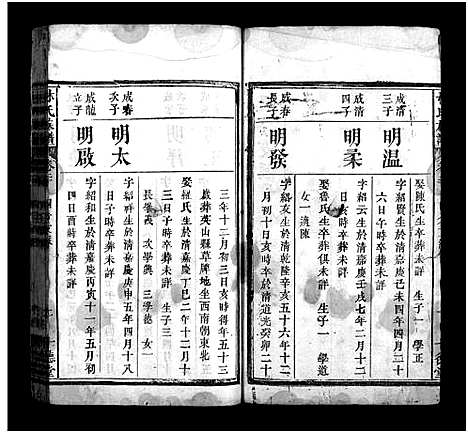 成清
三子
明溫
字紹賢生於清嘉慶己未四年四月二十
六日午時卒葬未詳
娶陳氏生卒葬未詳 生子一 學正
成清
四子
明柔
字紹雲生於清嘉慶壬戌七年二月十二
日亥時卒葬未詳
娶魯氏生卒葬俱未詳 生子一 學道
女一 適陳
成春
長子
明發
字紹亥生於清乾隆辛亥五十六年十二
月初十日亥時歿於清道光癸卯二十
三年十二月初三日亥時得年五十三
歲葬英山縣草牌地坐西南朝東北
娶程氏生於清嘉慶丁巳二年十二月十
三日子時卒葬未詳 生子三
長學義 次學興 三學德 女一
成春
次子
明太
字紹生於清嘉慶庚申五年四月十八
日子時卒葬未詳
成龍
立子
明啟
字紹和生於清嘉慶丙寅十一年五月初
四日酉時卒葬未詳
林氏族譜
德堂